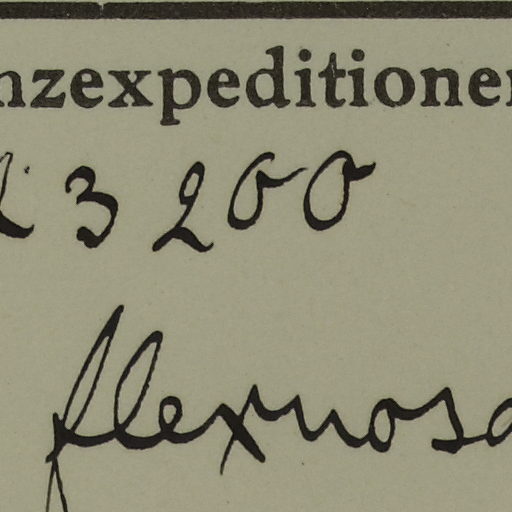 nzexpeditionen
3200
flexuosa